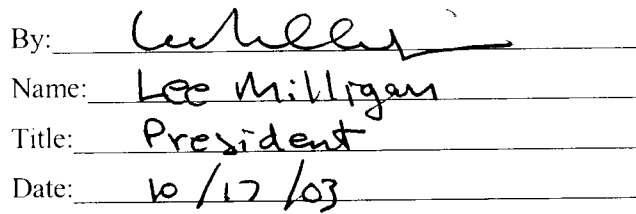 By:
Name: Lee Milligan
Title: President
Date: 10/17/03